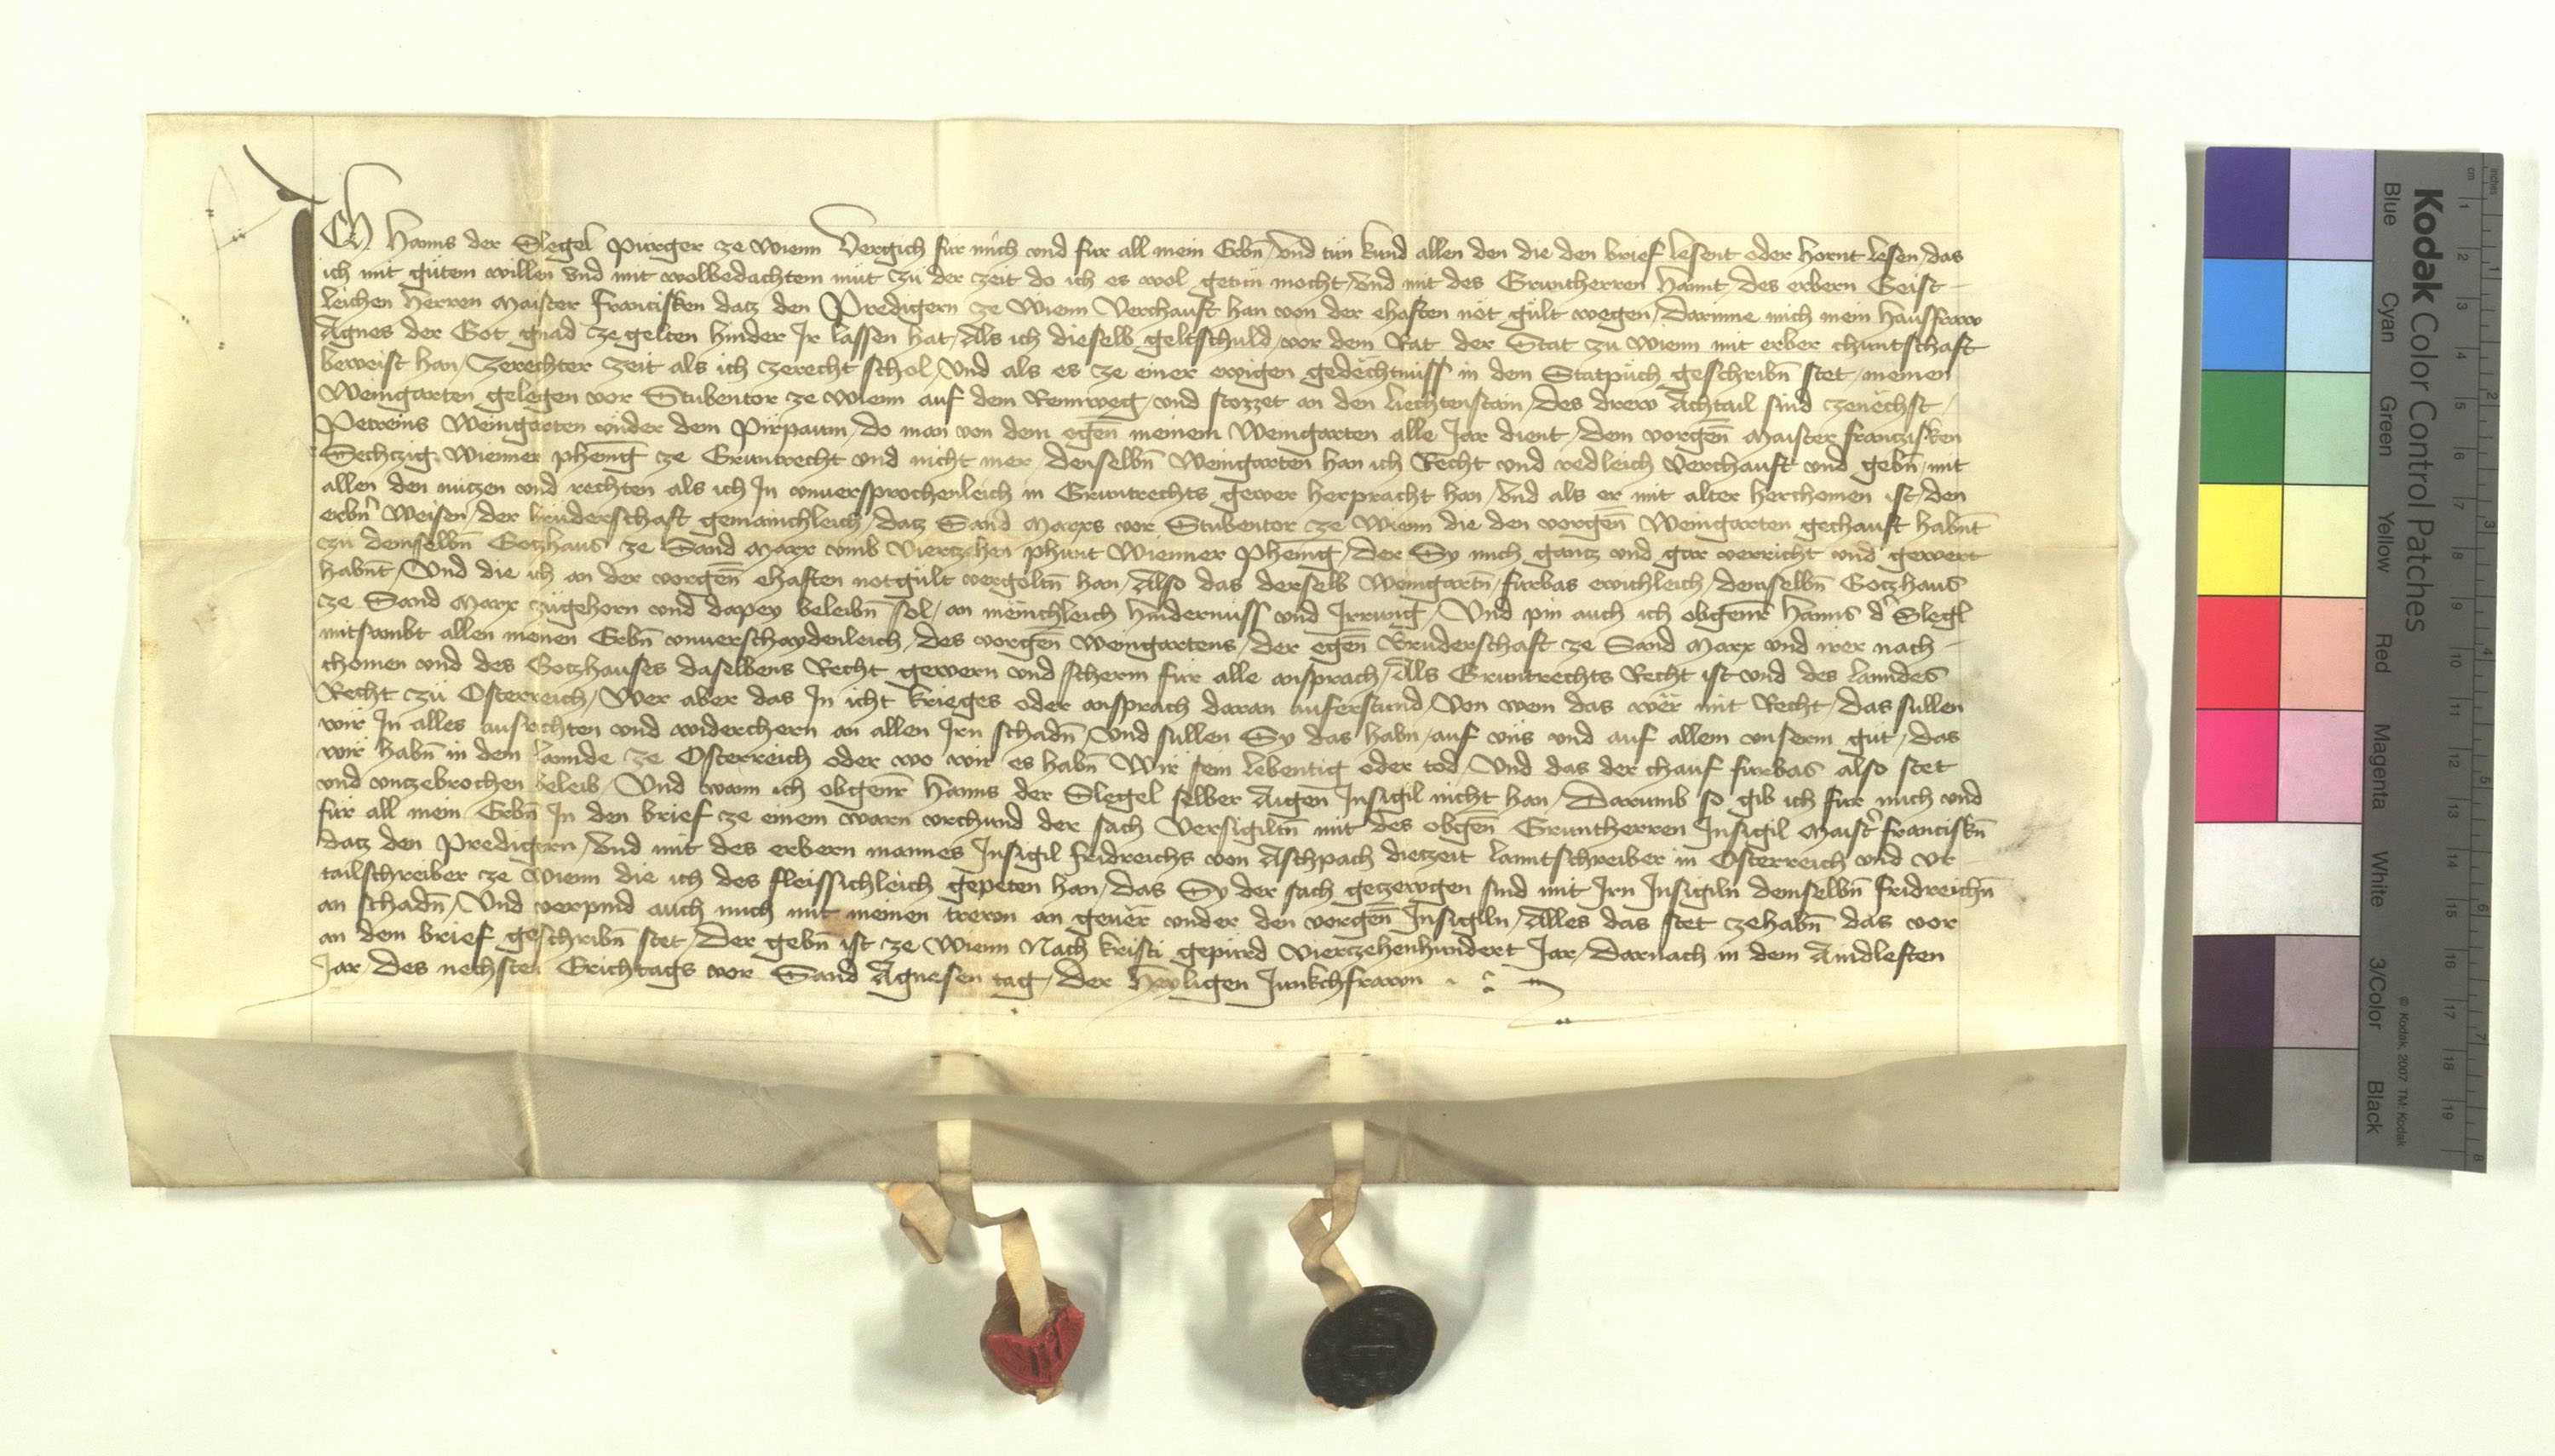 Ich Hanns der Slegel Purger ze Wienn Vergich fur mich vnd fur all mein Erbn̄ / vnd tun kund allen den die den brief lesent oder hornt lesen / das
ich mit gutem willen vnd mit wolbedachtem mut zu der zeit do ich es wol getun mocht / vnd mit des Gruntherren Hannt / des erbern Geist-
leichen Herren Maister Francisken datz den Predigern ze Wienn Verchauft han von der ehaften not gult wegen / Darinne mich mein Hausfraw
Agnes der Got gnad ze gelten hinder Ir lassen hat / Als ich dieselb geltschuld / vor dem Rat der Stat zu Wienn mit erber chuntschaft
beweist han / Zerechter zeit als ich zerecht schol / Vnd als es ze einer ewigen gedëchtnüss in dem Statpuch geschribn̄ stet / meinen
Weingarten gelegen vor Stubentor ze Wienn auf dem Rennweg / vnd stozzet an den Liechtenstain / Des drew Achtail sind zenëchst /
Petreins Weingarten vnder dem Pirpaum / do man von dem egen̄ meinem Weingarten alle Jar dient / dem vorgen̄ Maister Franzisken
Sechczig Wienner phenīg ze Gruntrecht vnd nicht mer / denselbn̄ Weingarten han ich Recht vnd redleich Verchauft vnd gebn̄ / mit
allen den nutzen vnd rechten als ich In vnuersprochenleich in Gruntrechts gewer herpracht han / Vnd als er mit alter herchomen ist / den
erbn̄ Weisen / der bruderschaft gemainchleich / datz Sand Marxs vor Stubentor ze Wienn die den vorgen̄ Weingarten gechauft habnt
zu demselbn̄ Gotzhaus ze Sand Marx vmb Viertzehen phunt Wienner Phenīg / Der Sy mich gantz vnd gar verricht vnd gewert
habnt / Vnd die ich an der vorgen̄ ehaften notgult vergoltn̄ han / Also das derselb Weingartn̄ / furbas ewichleich / demselbn̄ Gotzhaus
ze Sand Marx zugehorn vnd dapey beleibn̄ sol / an mënichleich hindernuss vnd Irrung / Vnd pin auch ich obgenr̄ Hanns d' Slegl
mitsambt allen meinen Erbn̄ vnuerschaydenleich / des vorgen̄ Weingartens / der egen̄ Bruderschaft ze Sand Marx vnd irer nach-
chomen vnd des Gotzhauses daselbens Recht gewern vnd scherm fur alle ansprach / Als Gruntrechts Recht ist vnd des lanndes
Recht zu Osterreich / Wer aber das In icht krieges oder ansprach daran auferstund / Von wem das wër mit Recht / das sullen
wir In alles ausrichten vnd widerchern an allen Irn schadn̄ / Vnd sullen Sy das habn / auf vns vnd auf allem vnserm gut / das
wir habn̄ in dem lannde ze Osterreich oder wo wir es habn̄ Wir sein lebentig oder tod / Vnd das der chauf furbas also stet
vnd vnzebrochen beleib / Vnd wann ich obgenr̄ Hanns der Slegel selber Aigen Insigil nicht han / Darumb so gib ich fur mich vnd
fur all mein Erbn̄ In den brief ze einem warn vrchund der sach Versigiltn̄ mit des obgen̄ Gruntherren Insigil Maist' Franciskn̄
datz den Predigern / Vnd mit des erbern mannes Insigil Fridreichs von Aschpach dietzeit lanntschreiber in Osterreich vnd Vr-
tailschreiber ze Wienn die ich des fleissichleich gepeten han / das Sy der sach getzewgen sind mit Irn Insigiln demselbn̄ Fridreichn̄
an schadn̄ / Vnd verpind auch mich mit meinen trewn an geuër vnder den vorgen̄ Insigiln / Alles das stet zehabn̄ das vor
an dem brief geschribn̄ stet / Der gebn̄ ist ze Wienn Nach kristi gepurd Viertzehenhundert Jar / Darnach in dem Aindleften
Jar / des nechsten Erichtags vor Sand Agnesen tag / der Heyligen Junkchfrawn
Kodak Color Control Patches
Blue Cyan Green Yellow Red Magenta White 3/Color Black
© Kodak, 2007 TM: Kodak
cm 1 2 3 4 5 6 7 8 9 10 11 12 13 14 15 16 17 18 19
inches 1 2 3 4 5 6 7 8